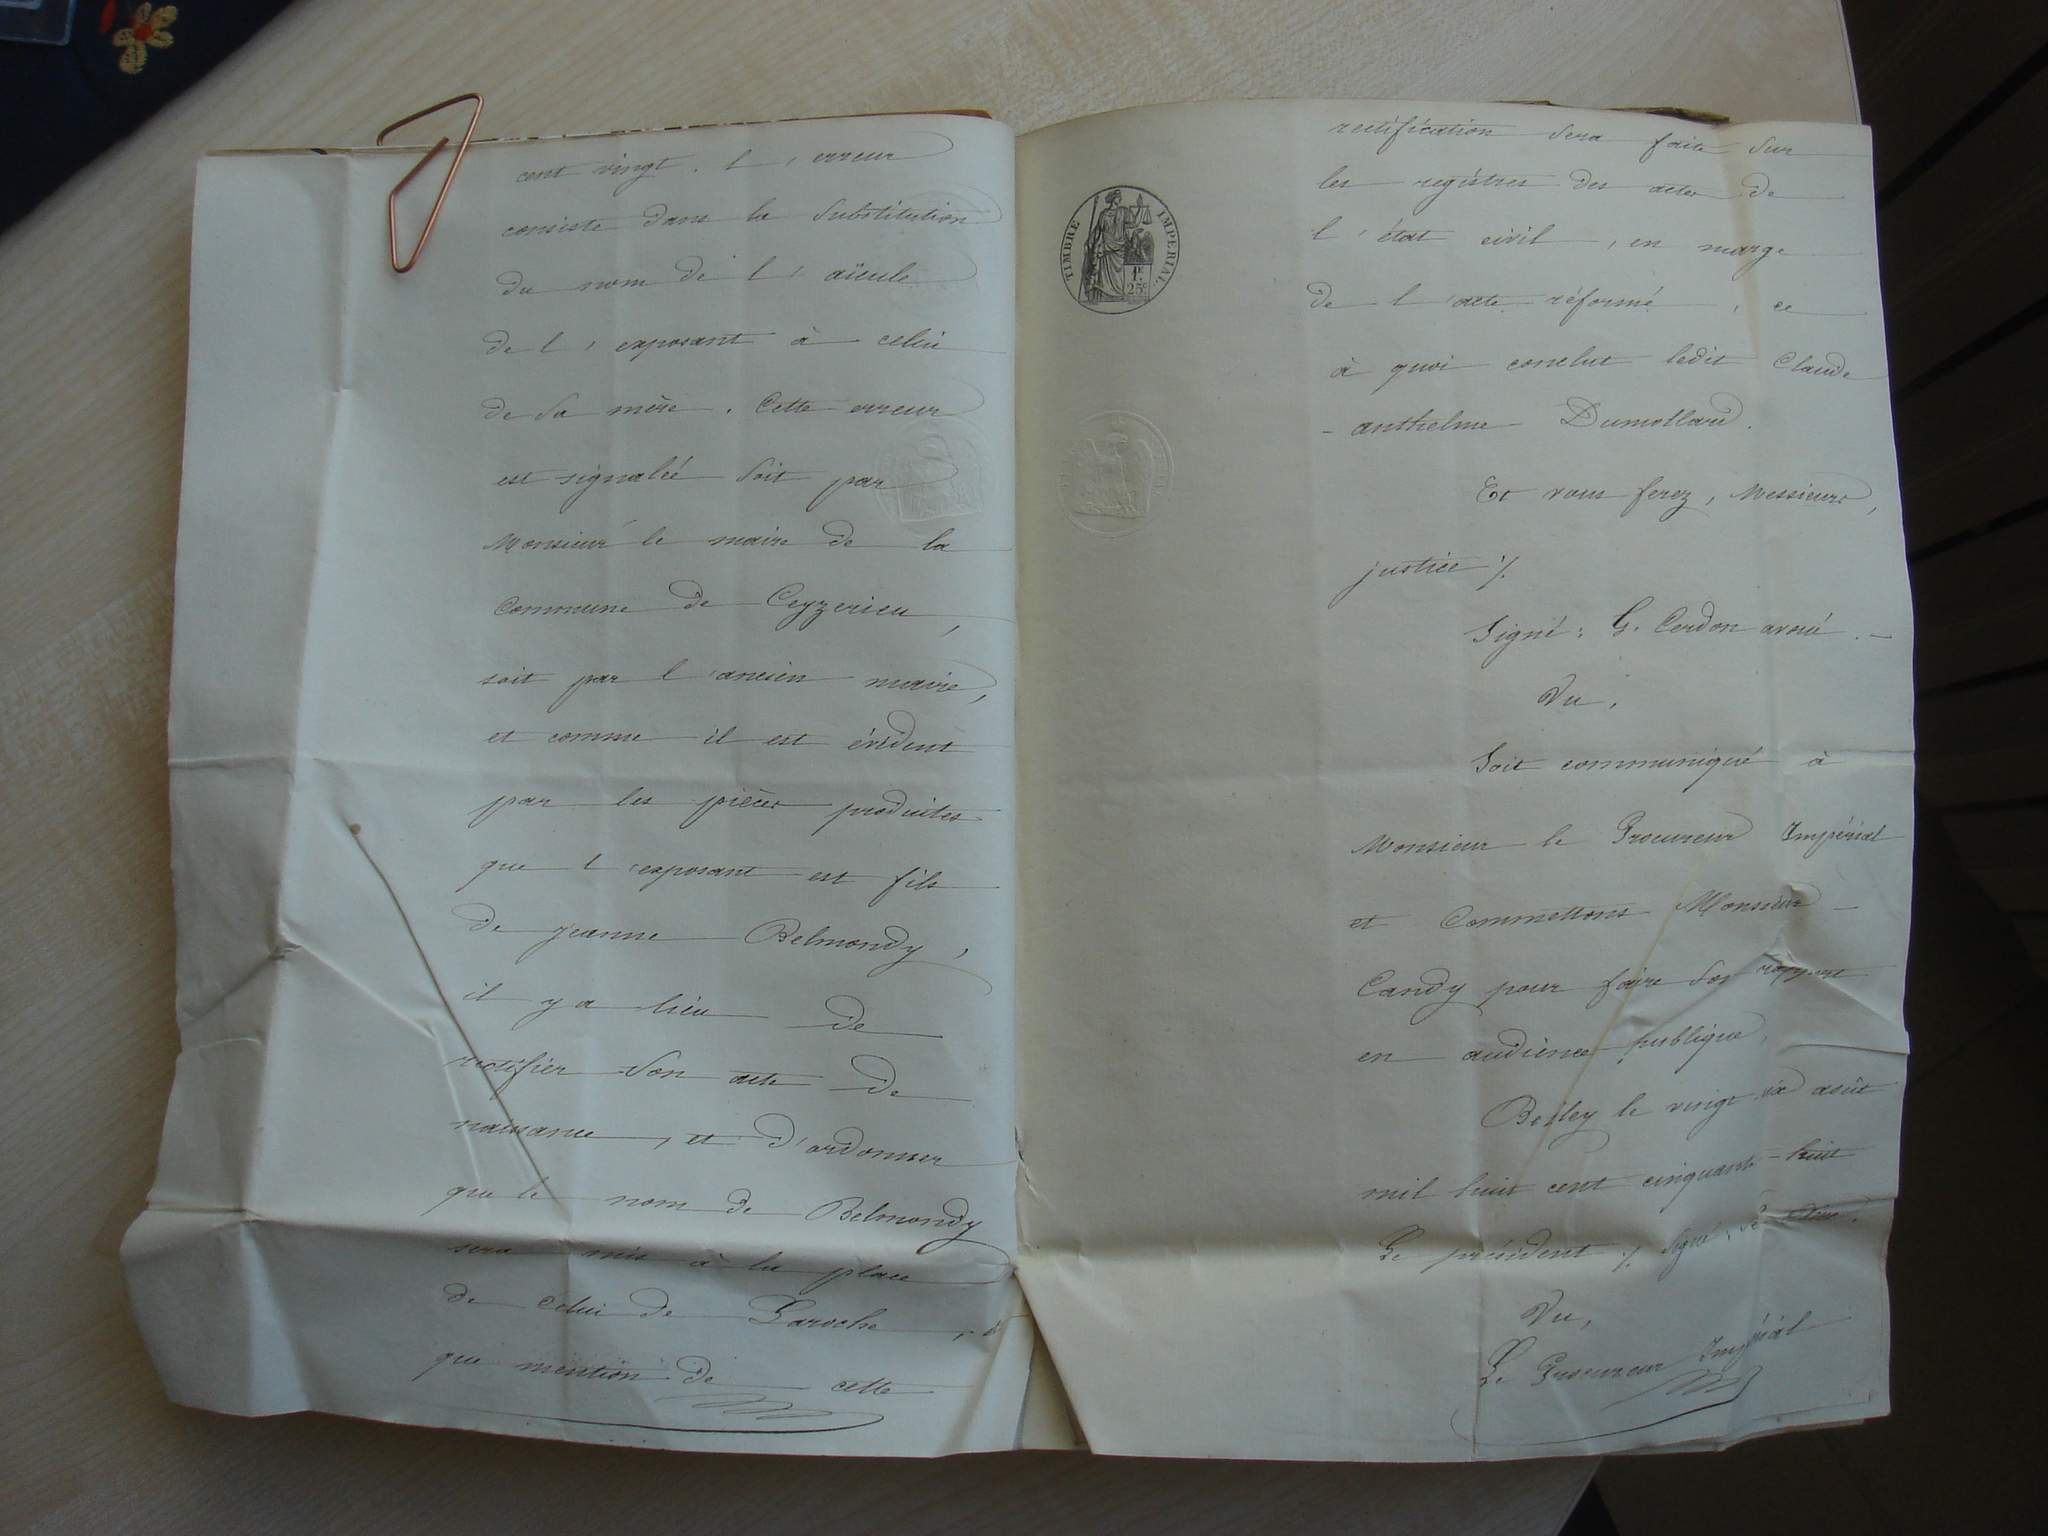 cent vingt. l'erreur
consiste dans la substitution
du nom de l'aïeule
de l'exposant à celui
de sa mère. Cette erreur
est signalée soit par
Monsieur le maire de la
Commune de Ceyzerieu,
soit par l'ancien maire,
et comme il est évident
par les pièces produites
que l'exposant est fils
de jeanne Belmondy,
il y a lieu de
rectifier son acte de
naissance, et d'ordonner
que le nom de Belmondy
sera mis à la place
de celui de Laroche, et
que mention de cette
TIMBRE IMPERIAL.
1f.
25c.
rectification sera faite sur
les registres des actes de
l'état civil, en marge
de l'acte réformé, ce
à quoi conclut ledit Claude
-anthelme Dumollard.
Et vous ferez, Messieurs,
justice %.
Signé: G. Cerdon avoué.
Vu,
Soit communiqué à
Monsieur le Procureur Impérial
et Commettons Monsieur
Candy pour faire son rapport
en audience publique,
Belley le vingt six août
mil huit cent cinquante-huit
Le président %. Signé,
Vu,
Le Procureur Impérial